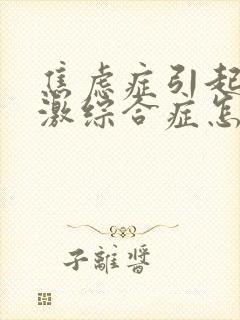 焦虑症引起
激综合症怎
子離醬